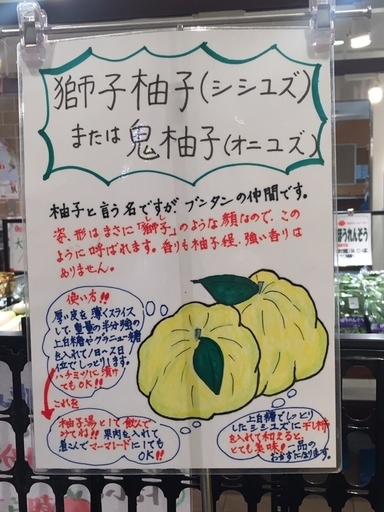 獅子柚子(シシユズ)
または鬼柚子(オニユズ)
柚子と言う名ですが、ブンタンの仲間です。
姿、形はまさに「獅子」のような顔なので、この
ように呼ばれます。香りも柚子程、強い香りは
ありません。
使い方!!
厚い皮を薄くスライス
して、重量の半分強の
上白糖やグラニュー糖
を入れて1日〜2日
位でしっとりします。
ハチミツに漬け
てもOK!!
これを
柚子湯として飲んで
みてね!!果肉を入れて
煮こんでマーマレードにしても
OK!!
上白糖でしっとり
したシシユズに干し柿
を入れて和えると、
とても美味。一品の
おかずになります。
ほうれんそう